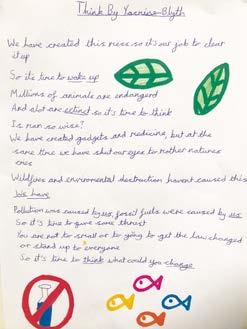 Think By Yasmine-Blyth
We have created this mess so it's our job to clear
it up
So its time to wake up
Millions of animals are endangerd
And alot are extinct so it's time to think
Is man so wise?
We have created gadgets and medicine, but at the
same time we have shut our eyes to mother natures
cries
Wildfires and enviromental destruction havent caused this
We have
Pollution was caused by us, fossil fuels were caused by us
So it's time to give some thrust
You are not to small or to going to get the law changed
or stand up to everyone
So it's time to think what could you change